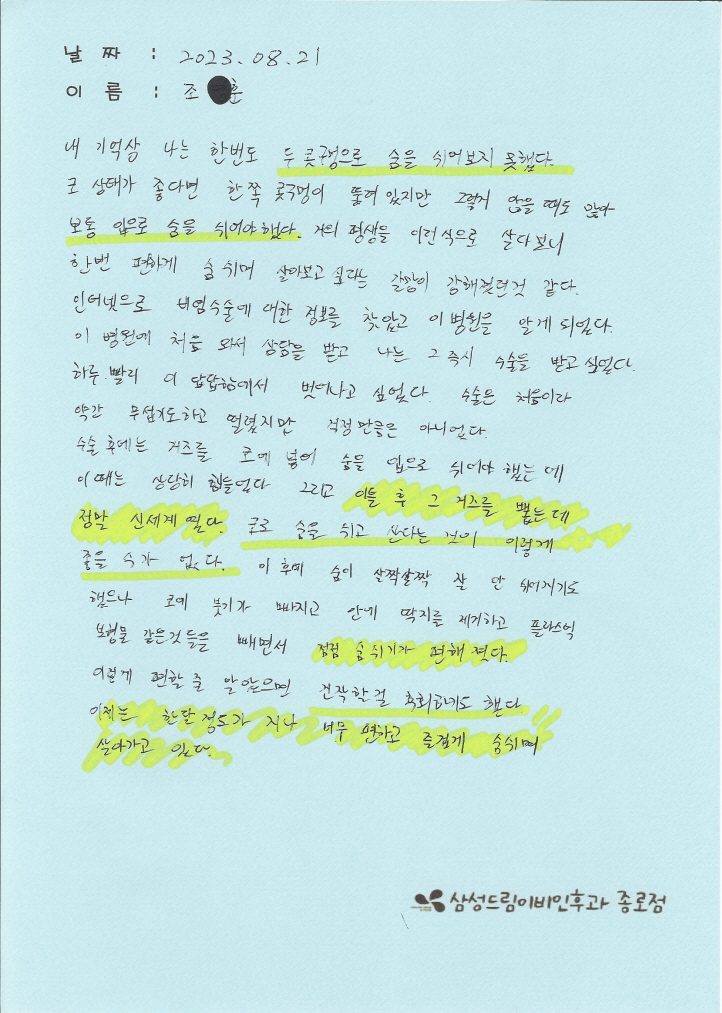 날 짜 : 2023.08.21
이 름 : 조 훈
내 기억상 나는 한번도 두 콧구멍으로 숨을 쉬어보지 못했다.
코 상태가 좋다면 한쪽 콧구멍이 뚫려 있지만 그렇게 않을 때도 많아
보통 입으로 숨을 쉬어야 했다. 거의 평생을 이런 식으로 살다보니
한번 편하게 숨 쉬며 살아보고 싶다는 갈망이 강해졌던것 같다.
인터넷으로 비염수술에 대한 정보를 찾았고 이 병원을 알게 되었다.
이 병원에 처음 와서 상담을 받고 나는 그 즉시 수술을 받고 싶었다.
하루 빨리 이 답답함에서 벗어나고 싶었다. 수술은 처음이라
약간 무섭기도하고 떨렸지만 걱정만큼은 아니었다.
수술 후에는 거즈를 코에 넣어 숨을 입으로 쉬어야 했는데
이때는 상당히 힘들었다 그리고 이틀 후 그 거즈를 뽑는데
정말 신세계였다. 코로 숨을 쉬고 산다는 것이 이렇게
좋을 수가 없다. 이 후에 숨이 살짝살짝 잘 안 쉬어지기도
했으나 코에 붓기가 빠지고 안에 딱지를 제거하고 플라스틱
보형물 같은것들을 빼면서 점점 숨쉬기가 편해졌다.
이렇게 편할 줄 알았으면 진작할걸 후회하기도 했다
이제는 한달 정도가 지나 너무 편하고 즐겁게 숨쉬며
살아가고 있다.
삼성드림이비인후과 종로점